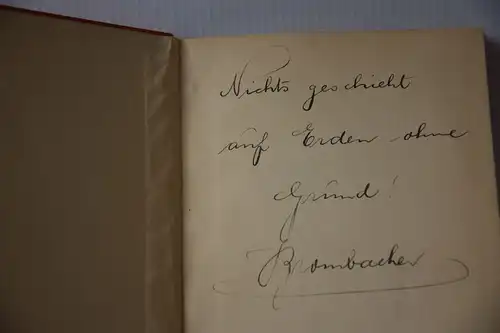 Nichts geschieht
auf Erden ohne
Grund!
Brombacher